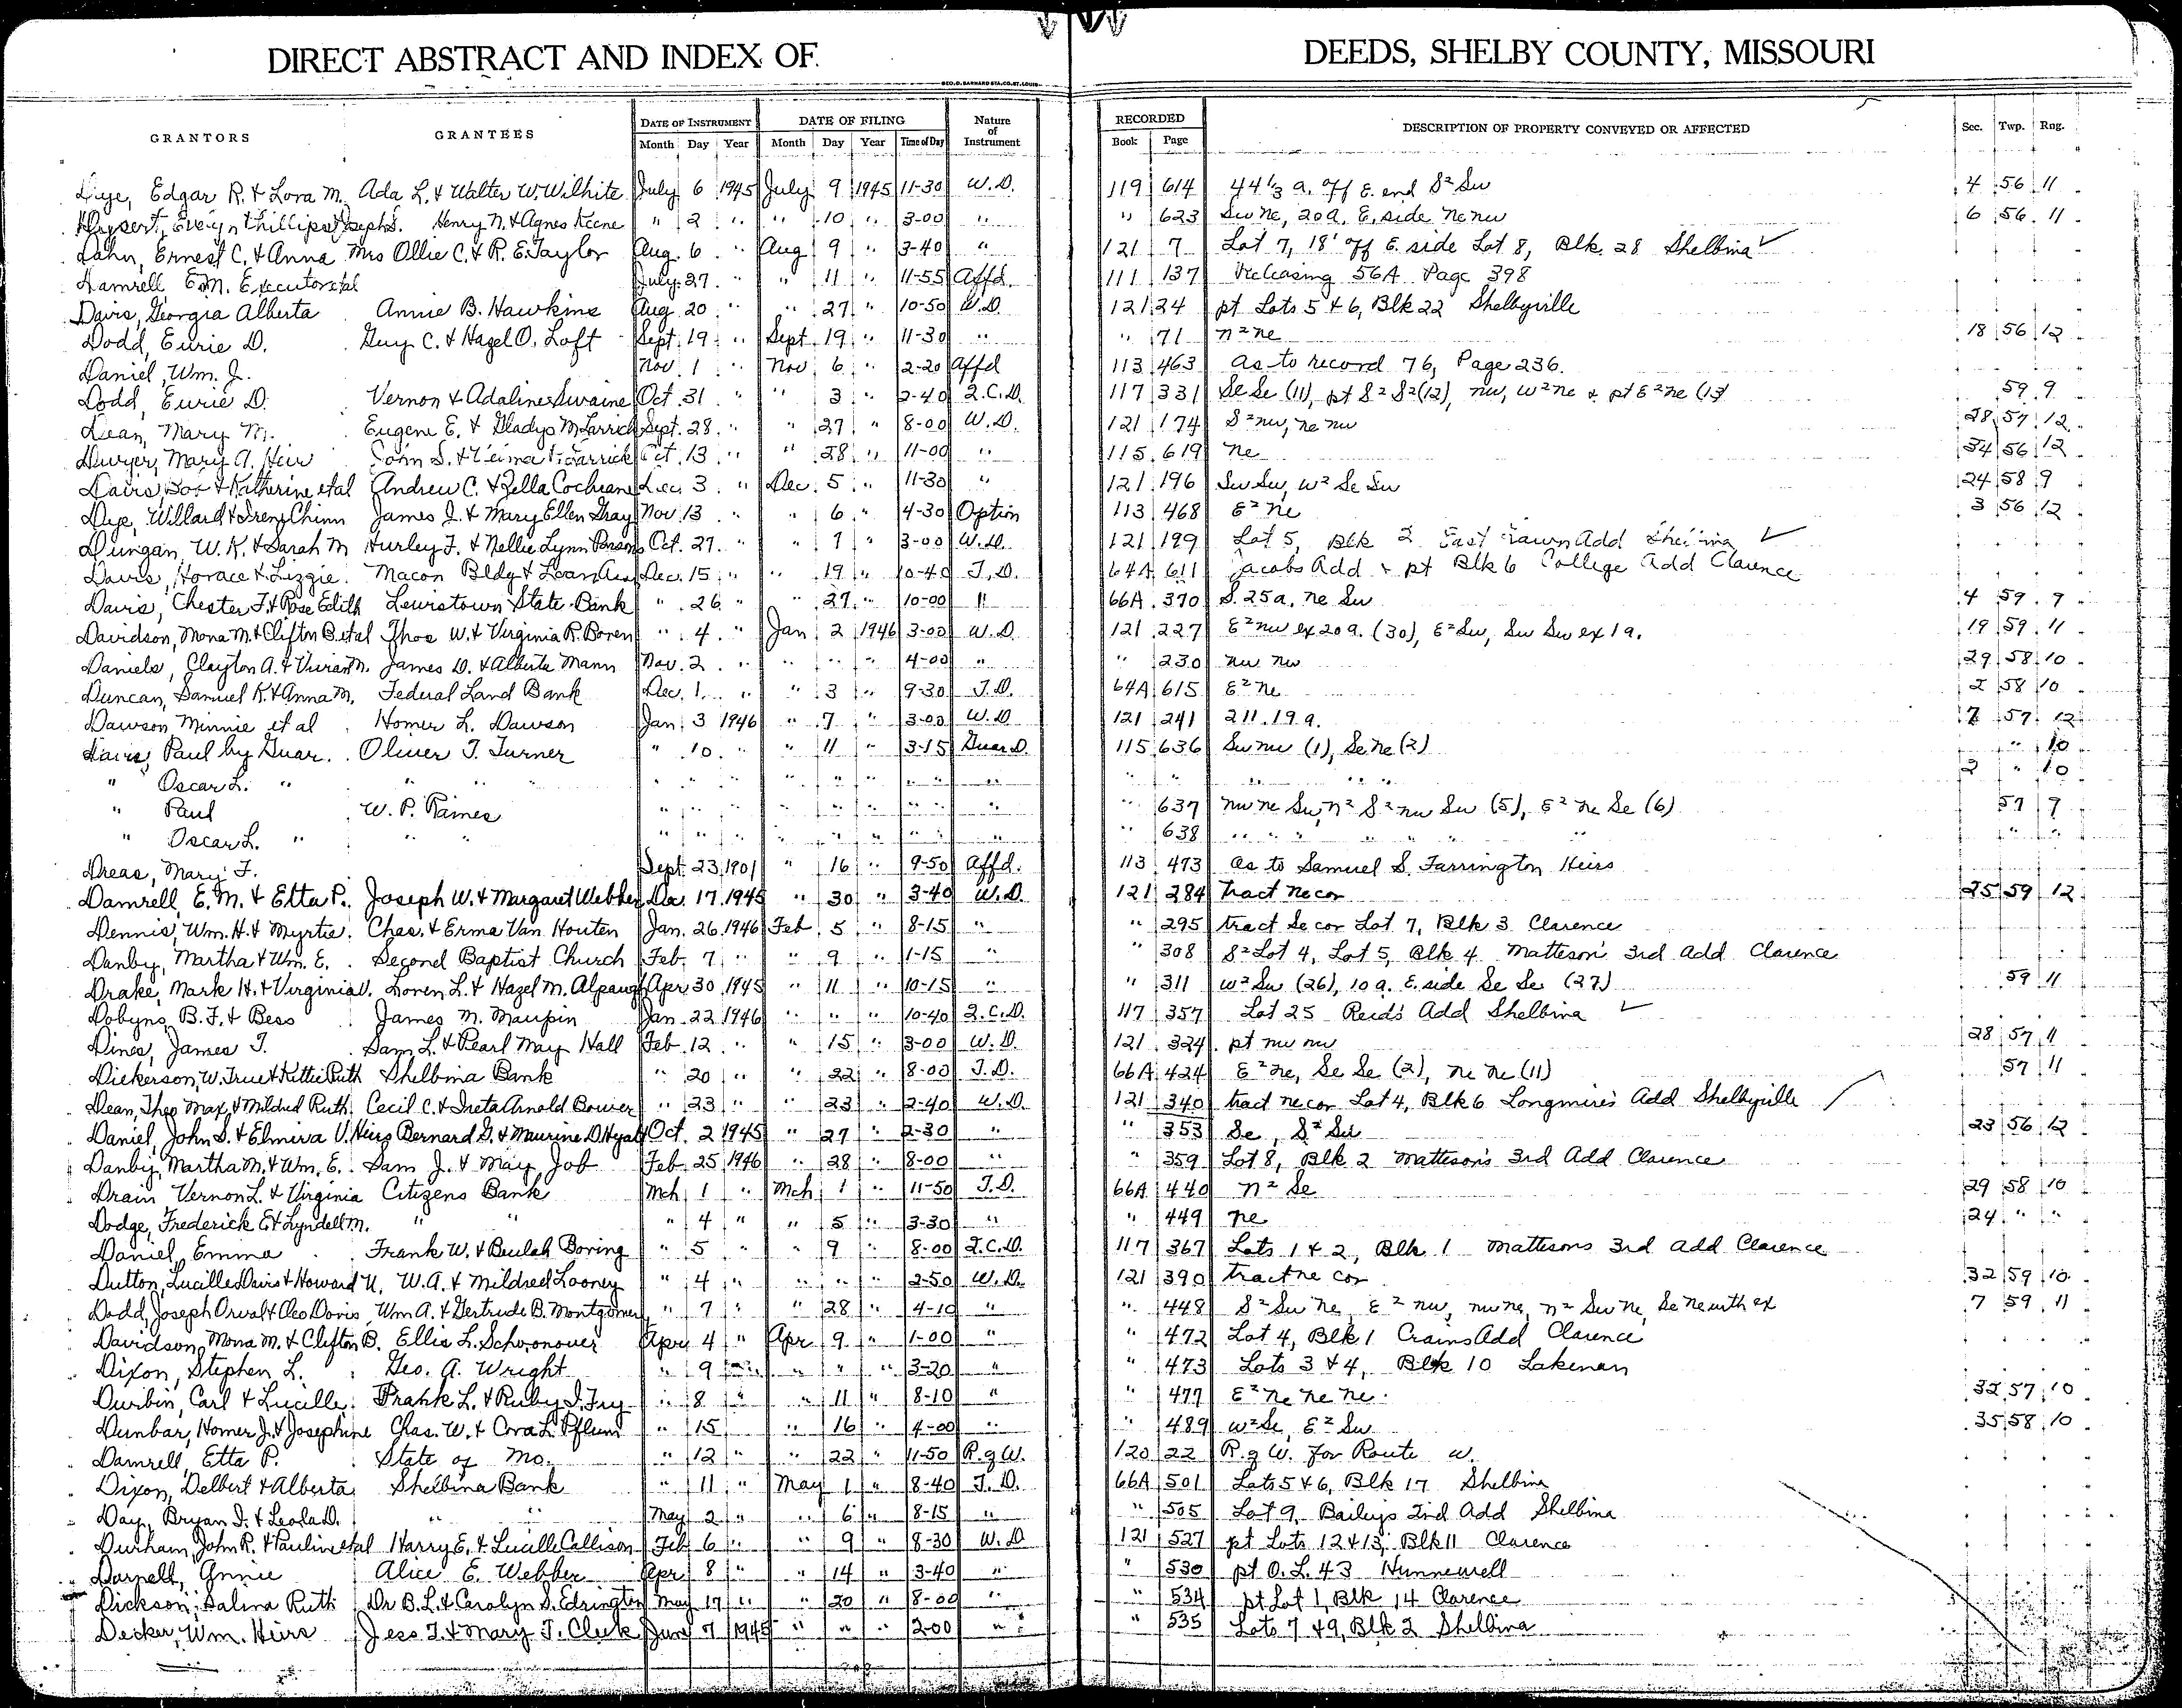 DIRECT ABSTRACT AND INDEX OF
DEEDS, SHELBY COUNTY, MISSOURI
GEO. D. BARNARD STA. CO. ST. LOUIS
GRANTORS GRANTEES DATE OF INSTRUMENT DATE OF FILING Nature of Instrument RECORDED DESCRIPTION OF PROPERTY CONVEYED OR AFFECTED Sec. Twp. Rng.
Month Day Year Month Day Year Time of Day Book Page
Dye, Edgar R. & Lora M. Ada L. & Walter W. Wilhite July 6 1945 July 9 1945 11-30 W.D. 119 614 44 1/3 a. off E. end S² Sw 4 56 11
Evelyn Phillips Henry N. & Agnes Keene " 2 " " 10 " 3-00 " " 623 Sw ne, 20 a. E. side ne nw 6 56 11
Dahn, Ernest C. & Anna Mrs Ollie C. & R. E. Taylor Aug. 6 " Aug 9 " 3-40 " 121 7 Lot 7, 18' off E. side Lot 8, Blk. 28 Shelbina ✓
Damrell E.M. Executor et al July 27 " " 11 " 11-55 Affd. 111 137 Releasing 56A Page 398
Davis, Georgia Alberta Annie B. Hawkins Aug 20 " " 27 " 10-50 W.D. 121 24 pt Lots 5 & 6, Blk 22 Shelbyville
Dodd, Eurie D. Guy C. & Hazel O. Loft Sept. 19 " Sept. 19 " 11-30 " " 71 n² ne 18 56 12
Daniel, Wm. J. Nov. 1 " Nov. 6 " 2-20 Affd 113 463 as to record 76, Page 236.
Dodd, Eurie D. Vernon & Adaline Swaine Oct. 31 " " 3 " 2-40 Q.C.D. 117 331 Se Se (11), pt S² S² (12), nw, w² ne & pt E² ne (13) 59 9
Dean, Mary M. Eugene E. & Gladys M. Larrick Sept. 28 " " 27 " 8-00 W.D. 121 174 S² nw, ne nw 28 57 12
Dwyer, Mary A. Heir John S. & Larrick Oct. 13 " " 28 " 11-00 " 115 619 ne 34 56 12
Davis Bob & Katherine et al Andrew C. & Zella Cochrane Dec. 3 " Dec. 5 " 11-30 " 121 196 Sw Sw, w² Se Sw 24 58 9
Dye, Willard & Irene Chinn James J. & Mary Ellen Gray Nov. 13 " " 6 " 4-30 Option 113 468 E² ne 3 56 12
Dungan, W. K. & Sarah M Hurley F. & Nellie Lynn Parsons Oct. 27 " " 7 " 3-00 W.D. 121 199 Lot 5, Blk 2 East Lawn Add Shelbina ✓
Davis, Horace & Lizzie Macon Bldg & Loan Assn Dec. 15 " " 19 " 10-40 T.D. 64A 611 Jacobs Add & pt Blk 6 College Add Clarence
Davis, Chester F. & Rose Edith Lewistown State Bank " 26 " " 27 " 10-00 " 66A 370 S. 25 a. ne Sw 4 59 9
Davidson, Mona M. & Clifton B. et al Thos W. & Virginia R. Boren " 4 " Jan 2 1946 3-00 W.D. 121 227 E² nw ex 20 a. (30), E² Sw, Sw Sw ex 1 a. 19 59 11
Daniels, Clayton A. & Vivian M. James D. & Alberta Mann Nov. 2 " " " " 4-00 " " 230 nw nw 29 58 10
Duncan, Samuel K. & Anna M. Federal Land Bank Dec. 1 " " 3 " 9-30 T.D. 64A 615 E² ne 2 58 10
Dawson Minnie et al Homer L. Dawson Jan. 3 1946 " 7 " 3-00 W.D. 121 241 211.19 a. 7 57 12
Davis, Paul by Guar. Oliver T. Turner " 10 " " 11 " 3-15 Guar D. 115 636 Sw nw (1), Se ne (2) " 10
" Oscar L. " " " " " " " " " " " " " " " " 2 " 10
" Paul W. P. Raines " " " " " " " " " 637 nw ne Sw, n² S² nw Sw (5), E² ne Se (6) 57 9
" Oscar L. " " " " " " " " " " " " 638 " " " " " " " "
Dreas, Mary F. Sept. 23 1901 " 16 " 9-50 Affd. 113 473 as to Samuel S. Farrington Heirs
Damrell, E. M. & Etta P. Joseph W. & Margaret Webber Dec. 17 1945 " 30 " 3-40 W.D. 121 284 tract ne cor 25 59 12
Dennis, Wm. H. & Myrtie Chas. & Erma Van Houten Jan. 26 1946 Feb. 5 " 8-15 " " 295 tract Se cor Lot 7, Blk 3 Clarence
Danby, Martha & Wm. E. Second Baptist Church Feb. 7 " " 9 " 1-15 " " 308 S² Lot 4, Lot 5, Blk 4 Matteson 3rd Add Clarence
Drake, Mark H. & Virginia V. Loren L. & Hazel M. Alpaugh Apr 30 1945 " 11 " 10-15 " " 311 w² Sw (26), 10 a. E. side Se Se (27) 59 11
Dobyns, B. F. & Bess James M. Maupin Jan. 22 1946 " " " 10-40 Q.C.D. 117 357 Lot 25 Reid's Add Shelbina ✓
Dines, James T. Sam L. & Pearl May Hall Feb. 12 " " 15 " 3-00 W.D. 121 324 pt nw nw 28 57 11
Dickerson, W. True & Kittie Ruth Shelbina Bank " 20 " " 22 " 8-00 T.D. 66A 424 E² ne, Se Se (2), ne ne (11) 57 11
Dean, Theo Max & Mildred Ruth Cecil C. & Ineta Arnold Bower " 23 " " 23 " 2-40 W.D. 121 340 tract ne cor Lot 4, Blk 6 Longmire's Add Shelbyville
Daniel, John S. & Elmira V. Heirs Bernard G. & Maurine D. Hyatt Oct. 2 1945 " 27 " 2-30 " " 353 Se, S² Sw 23 56 12
Danby, Martha M. & Wm. E. Sam J. & May Job Feb. 25 1946 " 28 " 8-00 " " 359 Lot 8, Blk 2 Matteson's 3rd Add Clarence
Drain Vernon L. & Virginia Citizens Bank Mch 1 " Mch 1 " 11-50 T.D. 66A 440 n² Se 29 58 10
Dodge, Frederick E & Lyndell M. " " " 4 " " 5 " 3-30 " " 449 ne 24 " "
Daniel, Emma Frank W. & Beulah Boring " 5 " " 9 " 8-00 Q.C.D. 117 367 Lots 1 & 2, Blk 1 Mattesons 3rd Add Clarence
Dutton, Lucille Davis & Howard U. W. A. & Mildred Looney " 4 " " " " 2-50 W.D. 121 390 tract ne cor 32 59 10
Dodd, Joseph Orval & Cleo Davis Wm A. & Gertrude B. Montgomery " 7 " " 28 " 4-10 " " 448 S² Sw ne, E² nw, nw ne, n² Sw ne, Se ne with ex 7 59 11
Davidson, Mona M. & Clifton B. Ellis L. Schoonover Apr. 4 " Apr 9 " 1-00 " " 472 Lot 4, Blk 1 Crains Add Clarence
Dixon, Stephen L. Geo. A. Wright " 9 " " " " 3-20 " " 473 Lots 3 & 4, Blk 10 Lakenan
Durbin, Carl & Lucille Frank L. & Ruby I. Fry " 8 " " 11 " 8-10 " " 477 E² ne ne ne 32 57 10
Dunbar, Homer J. & Josephine Chas. W. & Cora L. Pflum " 15 " 16 " 4-00 " " 489 w² Se, E² Sw 35 58 10
Damrell, Etta P. State of Mo. " 12 " " 22 " 11-50 R.g W. 120 22 R.g W. for Route W.
Dixon, Delbert & Alberta Shelbina Bank " 11 " May 1 " 8-40 T.D. 66A 501 Lots 5 & 6, Blk 17 Shelbina
Day, Bryan I. & Leola D. " " May 2 " " 6 " 8-15 " " 505 Lot 9, Bailey's 2nd Add Shelbina
Durham, John R. & Pauline et al Harry E. & Lucille Callison Feb 6 " " 9 " 8-30 W.D 121 527 pt Lots 12 & 13, Blk 11 Clarence
Darnell, Annie Alice E. Webber Apr 8 " " 14 " 3-40 " " 530 pt O.L. 43 Hunnewell
Dickson, Salina Ruth Dr B. L. & Carolyn S. Edrington May 17 " " 20 " 8-00 " " 534 pt Lot 1, Blk 14 Clarence
Decker, Wm. Heirs Jess T. & Mary J. Cleek June 7 1945 " " " 2-00 " " 535 Lots 7 & 9, Blk 2 Shelbina